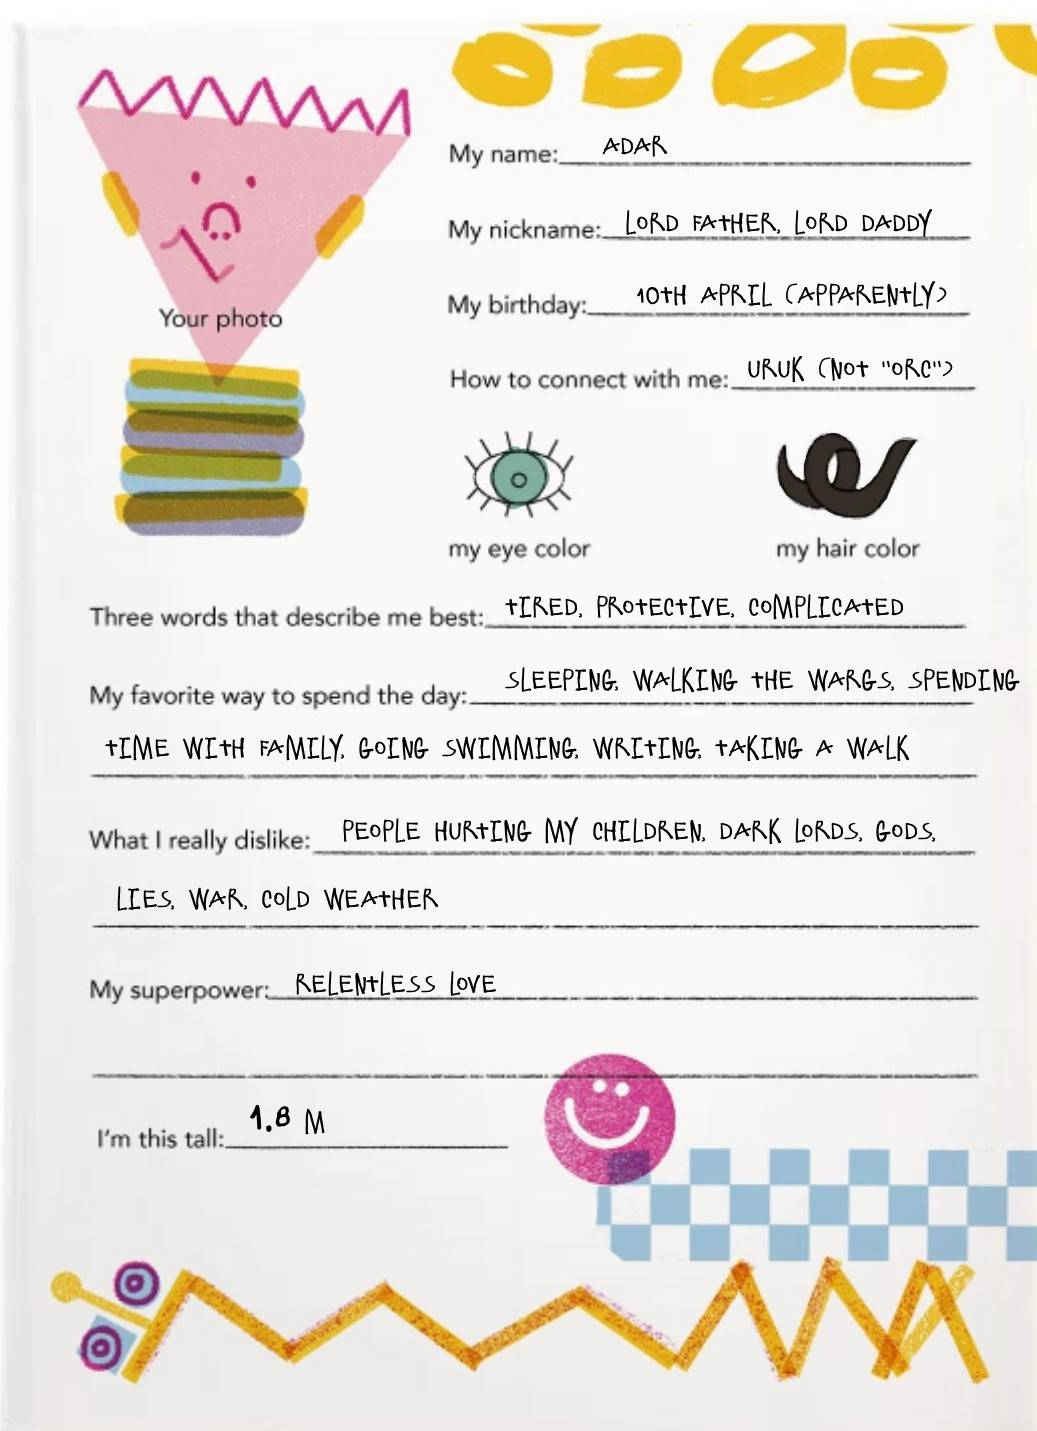 My name: ADAR
My nickname: LORD FATHER, LORD DADDY
My birthday: 10TH APRIL (APPARENTLY)
Your photo
How to connect with me: URUK (NOT "ORC")
my eye color
my hair color
Three words that describe me best: TIRED, PROTECTIVE, COMPLICATED
My favorite way to spend the day: SLEEPING, WALKING THE WARGS, SPENDING
TIME WITH FAMILY, GOING SWIMMING, WRITING, TAKING A WALK
What I really dislike: PEOPLE HURTING MY CHILDREN, DARK LORDS, GODS,
LIES, WAR, COLD WEATHER
My superpower: RELENTLESS LOVE
I'm this tall: 1.8 M